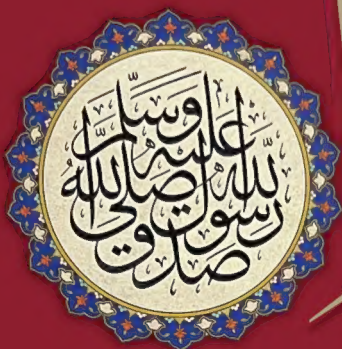 صدق رسول الله صلى الله عليه وسلم